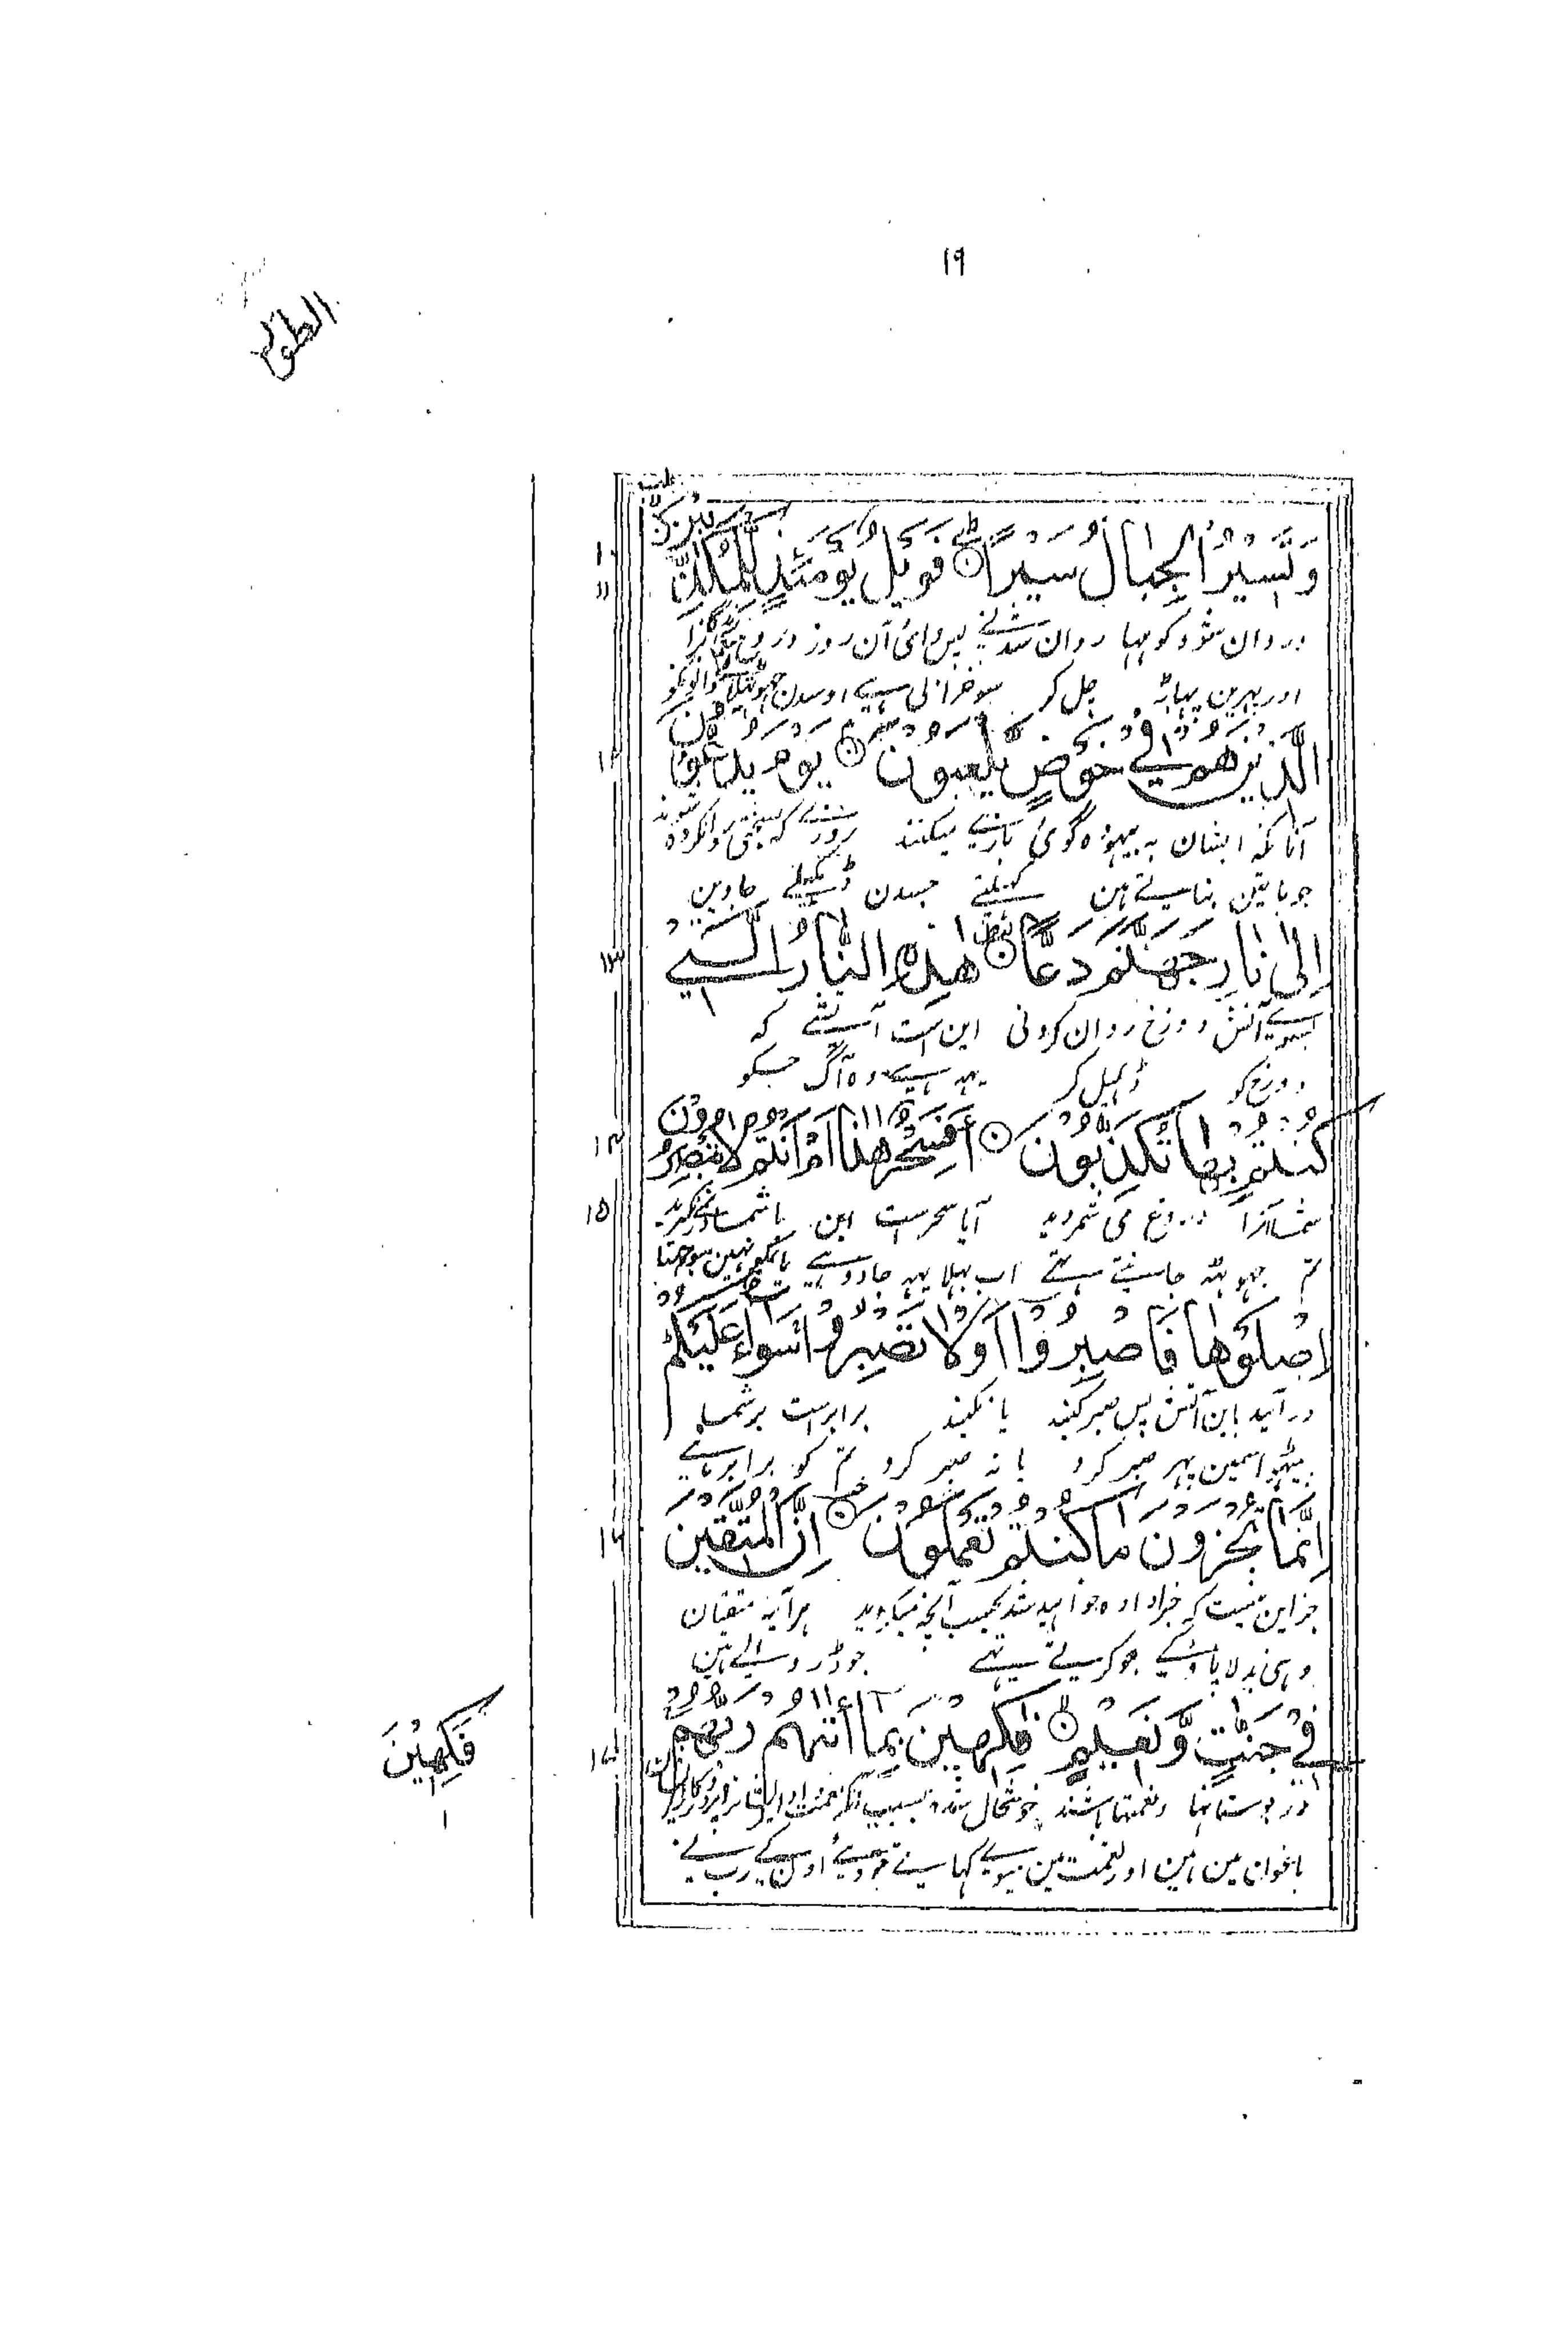 ١٩
الطور
وَّتَسِيْرُ الْجِبَالُ سَيْرًا ۝ فَوَيْلٌ يَّوْمَئِذٍ لِّلْمُكَذِّبِيْنَ
١٠
١١
و روان شود کوهها روان شدنے پس وائ آن روز دروغ
اور پهرین پهاڑ چل کر سو خرابی هے اوسدن
الَّذِيْنَ هُمْ فِيْ خَوْضٍ يَّلْعَبُوْنَ ۝ يَوْمَ يُدَعُّوْنَ
١٢
آنانکه ایشان به بیهوده گوئ بازے میکنند روزے که بسختی روانکرده شوند
جو باتین بناتے هین کهیلتے جسدن ڈهکیلے جاوین
اِلٰى نَارِ جَهَنَّمَ دَعًّا ۝ هٰذِهِ النَّارُ الَّتِيْ
١٣
بسوے آتش دوزخ روان کردنی این است آتشے که
دوزخ کو ڈهکیل کر یهه هے وه آگ جسکو
كُنْتُمْ بِهَا تُكَذِّبُوْنَ ۝ اَفَسِحْرٌ هٰذَا اَمْ اَنْتُمْ لَا تُبْصِرُوْنَ
١٤
١٥
شما آنرا دروغ می شمردید آیا سحرست این یا شما نمےنگرید
تم جهوٹهه جانتے تهے اب بهلا یهه جادو هے یا تمکو نهین سوجهتا
اِصْلَوْهَا فَاصْبِرُوْا اَوْ لَا تَصْبِرُوْا سَوَاءٌ عَلَيْكُمْ
در آئید باین آتش پس صبر کنید یا نکنید برابرست بر شما
بیٹهو اسمین پهر صبر کرو یا نه صبر کرو تم کو برابر هے
اِنَّمَا تُجْزَوْنَ مَا كُنْتُمْ تَعْمَلُوْنَ ۝ اِنَّ الْمُتَّقِيْنَ
١٦
جز این نیست که جزا داده خواهید شد بحسب آنچه میکردید هر آینه متقیان
وهی بدلا پاؤگے جو کرتے تهے جو ڈر والے هین
فِيْ جَنّٰتٍ وَّنَعِيْمٍ ۝ فٰكِهِيْنَ بِمَا اٰتٰهُمْ رَبُّهُمْ
١٧
در بوستانها و نعمتها باشند خوشحال شده بسبب آنکه نعمت داد ایشانرا پروردگار ایشان
باغوان مین هین اور نعمت مین میوے کهاتے جو دیئے اونکے رب نے
فٰكِهِيْنَ